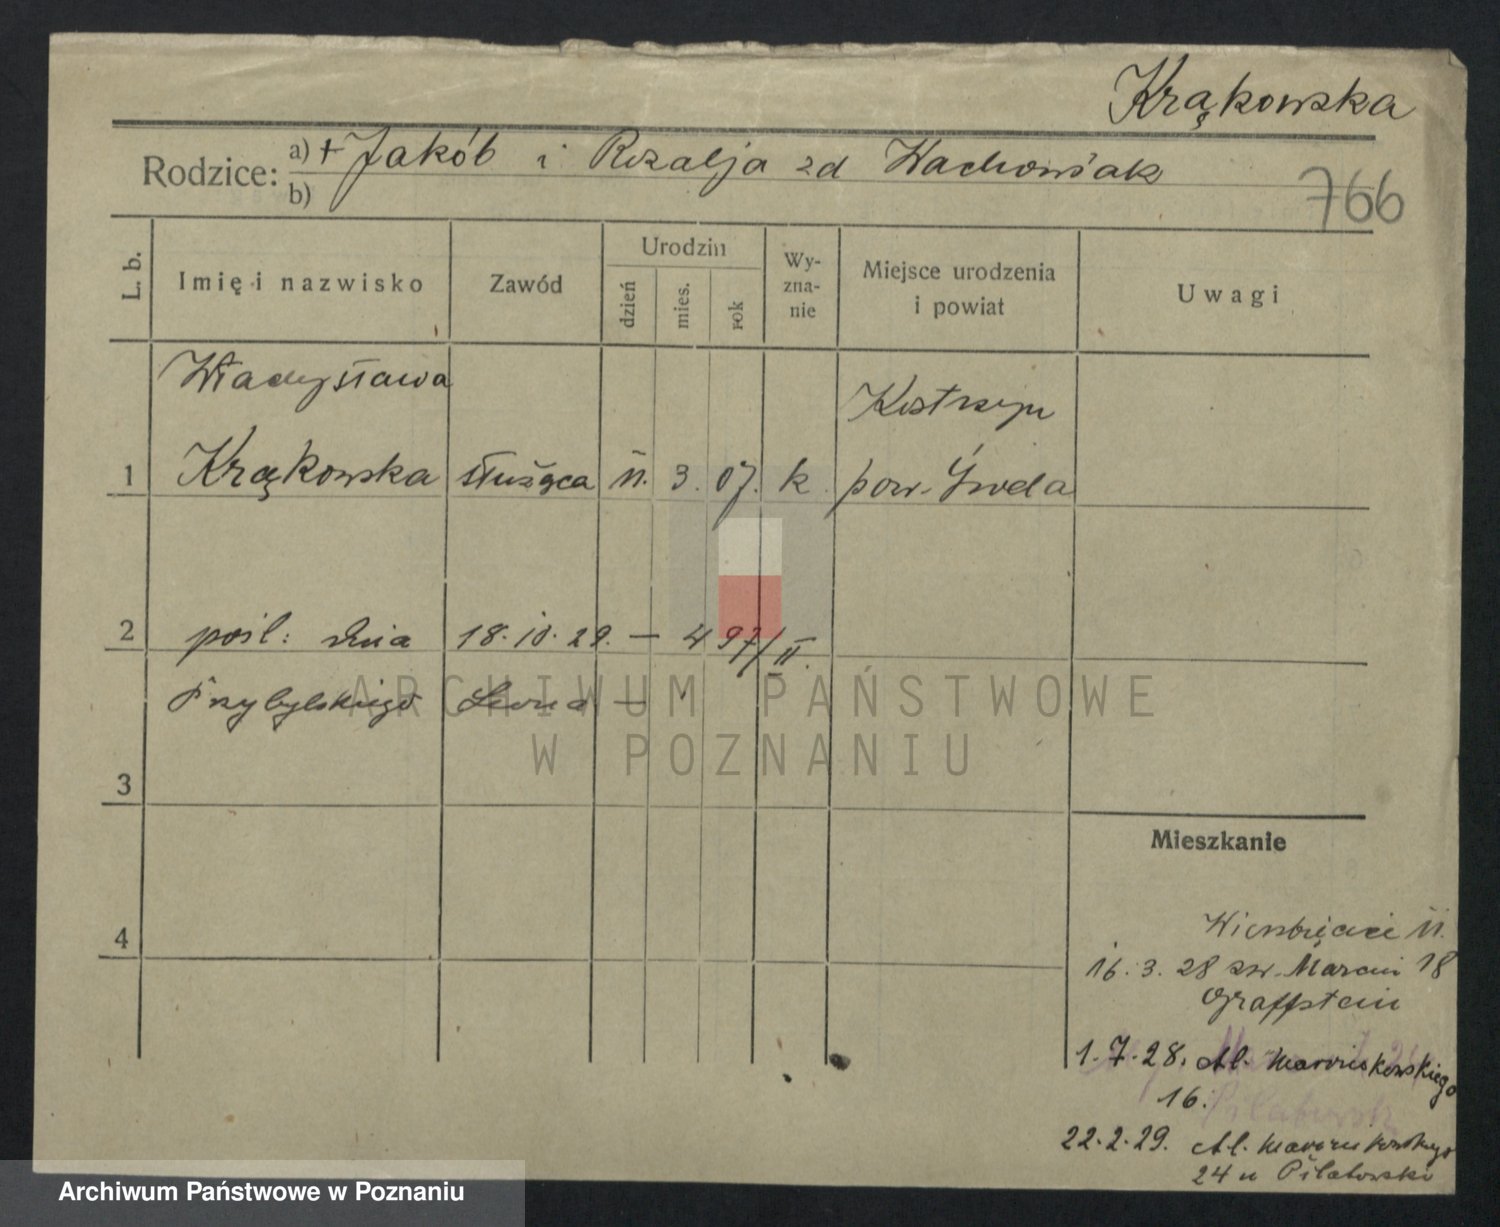 Krąkowska
Rodzice: a) + Jakób i Rozalja zd Wachowiak
b)
766
L. b.
Imię i nazwisko
Zawód
Urodzin
dzień
mies.
rok
Wy-
zna-
nie
Miejsce urodzenia
i powiat
Uwagi
Władysława
Kostrzyn
1 Krąkowska służąca 11. 3. 07. k pow. Środa
2 pośl: dnia 18.10.29. — 497/II.
Przybylskiego Leona —
ARCHIWUM PAŃSTWOWE
W POZNANIU
3
Mieszkanie
4
Wierzbięcice 11.
16.3.28 św. Marcin 18
Graffstein
1.7.28. Al. Marcinkowskiego
16.
22.2.29. Al. Marcinkowskiego
24 u Pilatowski
Archiwum Państwowe w Poznaniu